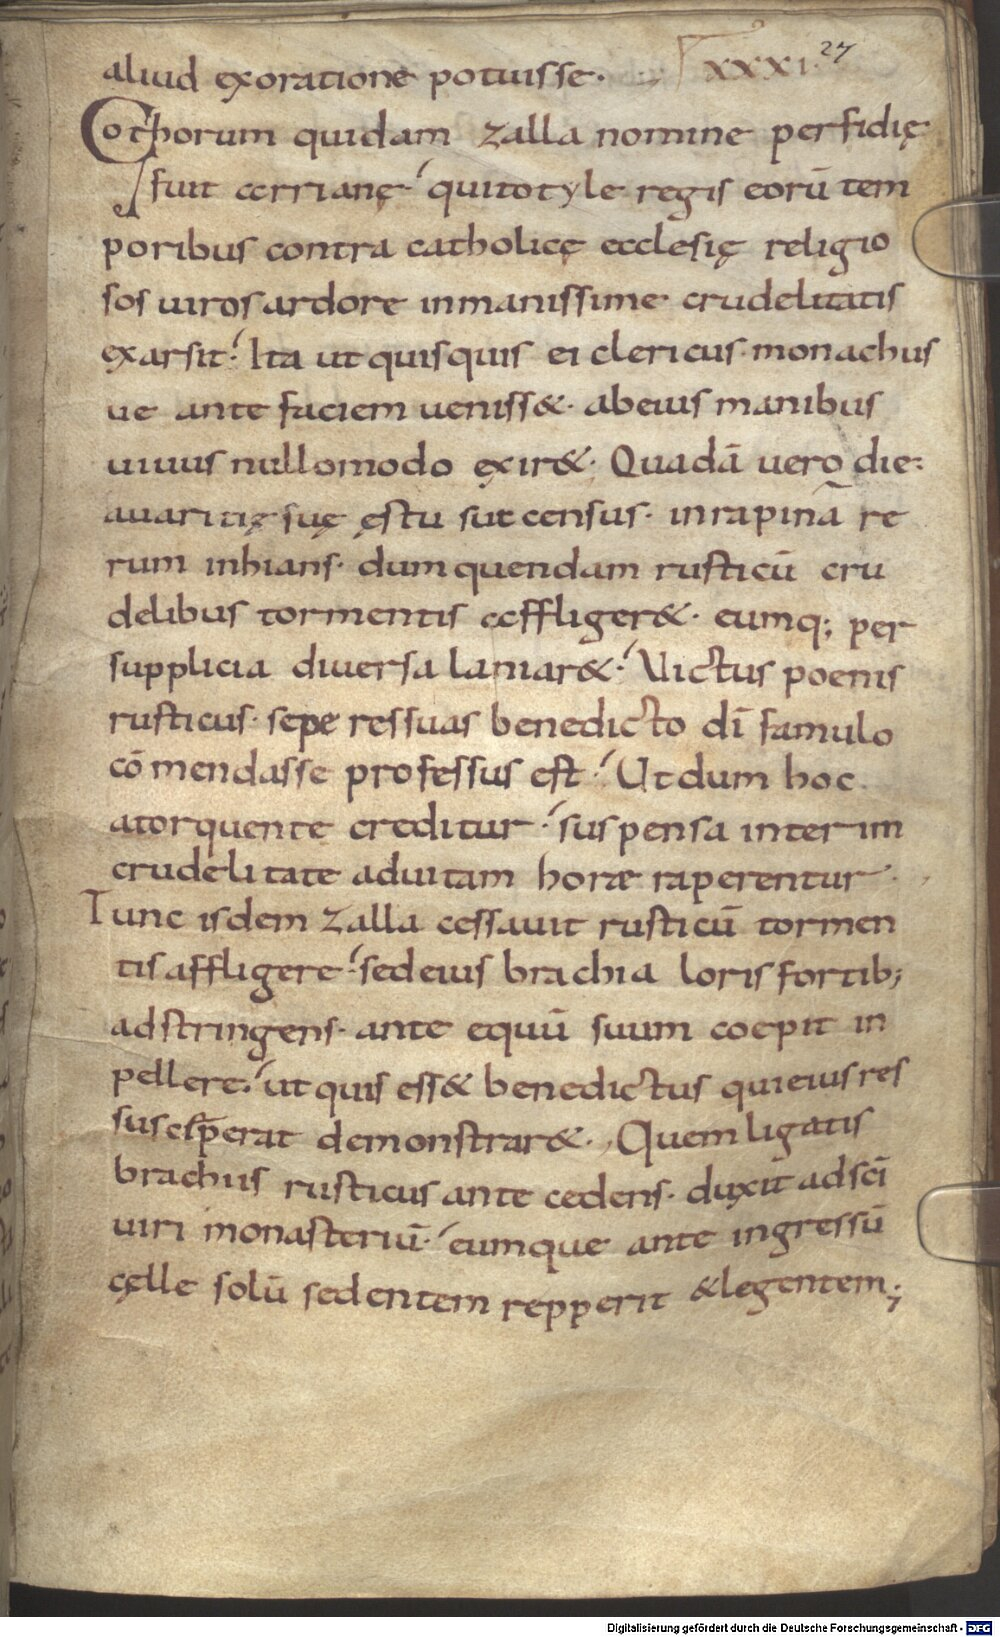 aliud exoratione potuisse· XXXI· 27
Gothorum quidam zalla nomine perfidię
fuit arrianę· quitotyle regis eorū tem
poribus contra catholicę ecclesię religio
sos uiros ardore inmanissime crudelitatis
exarsit· Ita ut quisquis ei clericus· monachus
ue ante faciem ueniss&· abeius manibus
uiuus nullomodo exir&· Quadā uero die·
auaritię suę ęstu succensus· inrapinā re
rum inhians· dum quendam rusticū cru
delibus tormentis affliger&· eumq; per
supplicia diuersa laniar&· Victus poenis
rusticus· sepe ressuas benedicto dī famulo
cōmendasse professus est· Ut dum hoc
atorquente creditur· suspensa interim
crudelitate aduitam horæ raperentur·
Tunc isdem zalla cessauit rusticū tormen
tis affligere· sed eius brachia loris fortib;
adstringens· ante equū suum coepit in
pellere· ut quis ess& benedictus qui eius res
susceperat demonstrar&· Quem ligatis
brachiis rusticus ante cedens· duxit ad scī
uiri monasteriū· eumque ante ingressū
cęlle solū sedentem repperit &legentem;